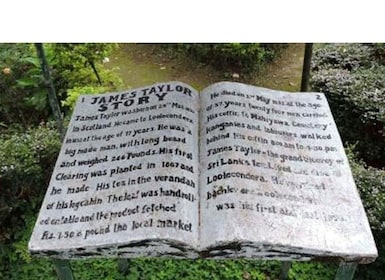 1 JAMES TAYLOR
STORY
James taylor was born on 29th March
in Scotland. He came to Loolecondera
was at the age of 17 years. He was a
big made man, with long beard
and weighed 246 Pounds. His first
clearing was planted in 1867 and
he made His tea in the verandah
of his log cabin. The leaf was handroll
ed on table and the product fetched
Rs. 1.50 a pound the local market
2
He died on 2nd May was at the age
of 57 years twenty four men carried
his coffin to Mahiyawa Cemetery
kanganies and labourers walked
behind his coffin 8.00 am to 4.30 pm.
James Taylor the
Sri Lanka's
Loolecondera. He
bachler
was his first and last love.